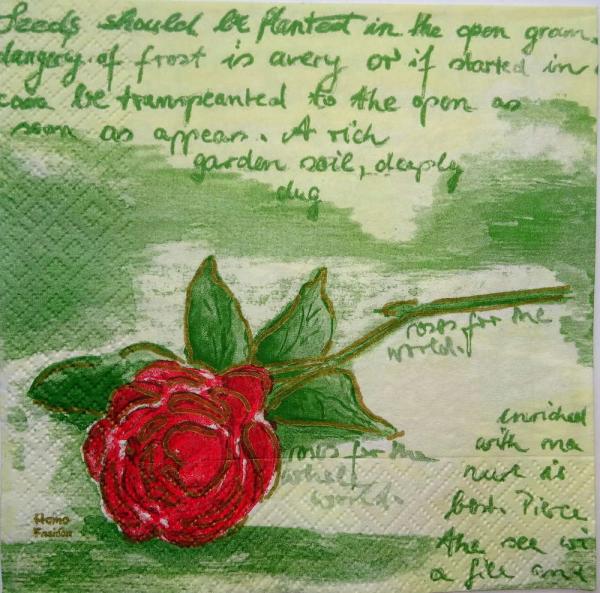 Seeds should be planted in the open groun
dangery of frost is avery or if started in
can be trampeanted to the open as
soon as appears. A rich
garden soil, deeply
dug
roses for the
world.
enriched
with ma
nure is
best. Pierce
the see wi
a file and
roses for the
whole
world.
Home
Fashion